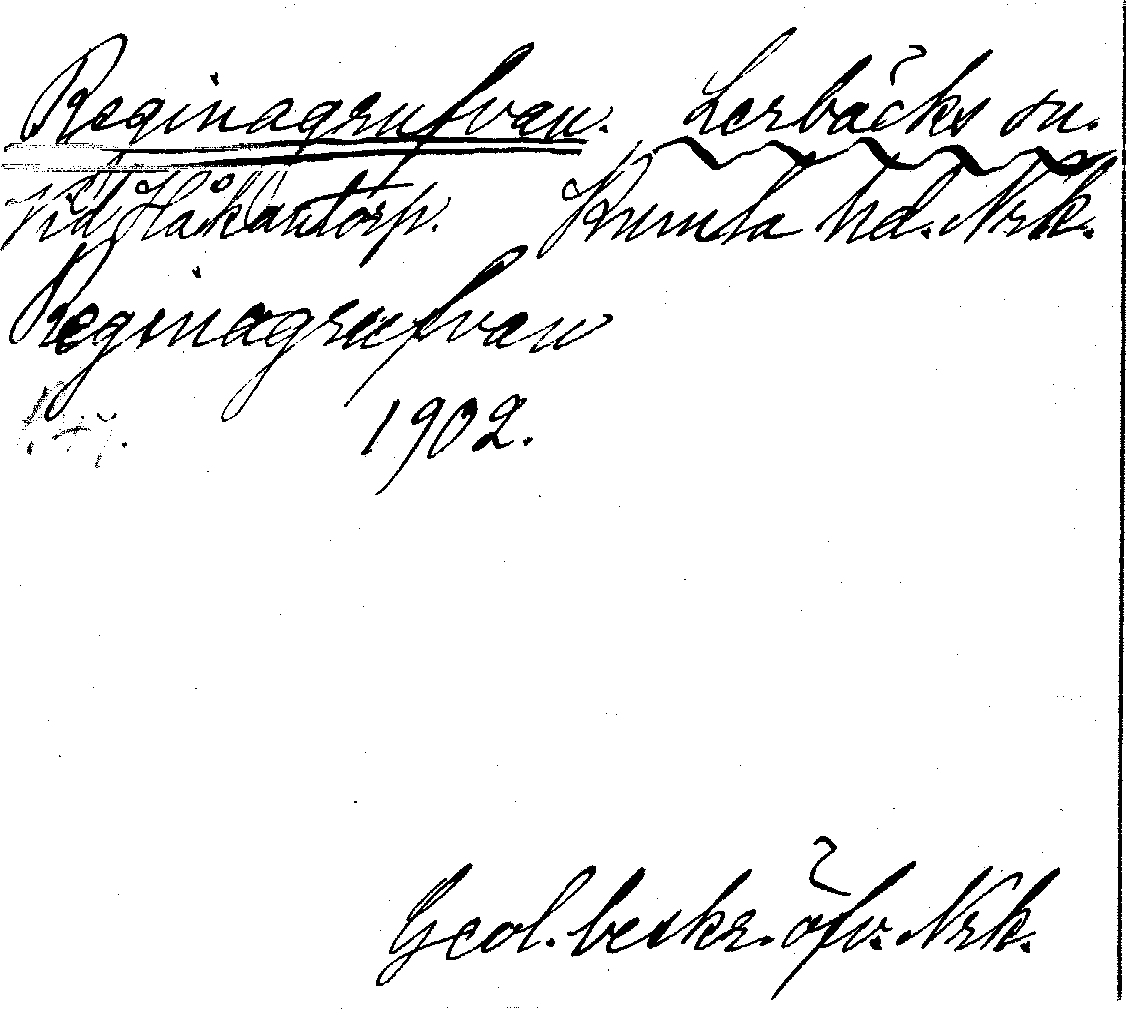 Reginagrufvan. Lerbäcks sn.
Vid Håkantorp. Kumla hd. Nrk.
Reginagrufvan
1902.
Geol. beskr. öfv. Nrk.